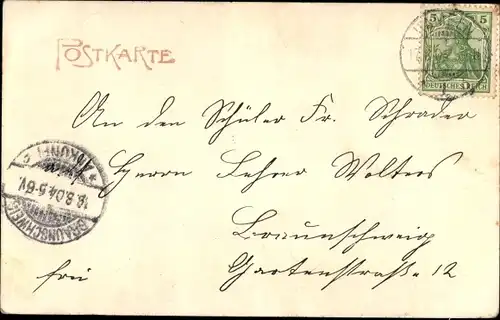 POSTKARTE
5 5
DEUTSCHES REICH
An den Schüler Fr. Schrader
Herrn Lehrer Wolters
Braunschweig
frei Gartenstraße 12
ANKUNFT
18.8.04.5-6V.
BRAUNSCHWEIG